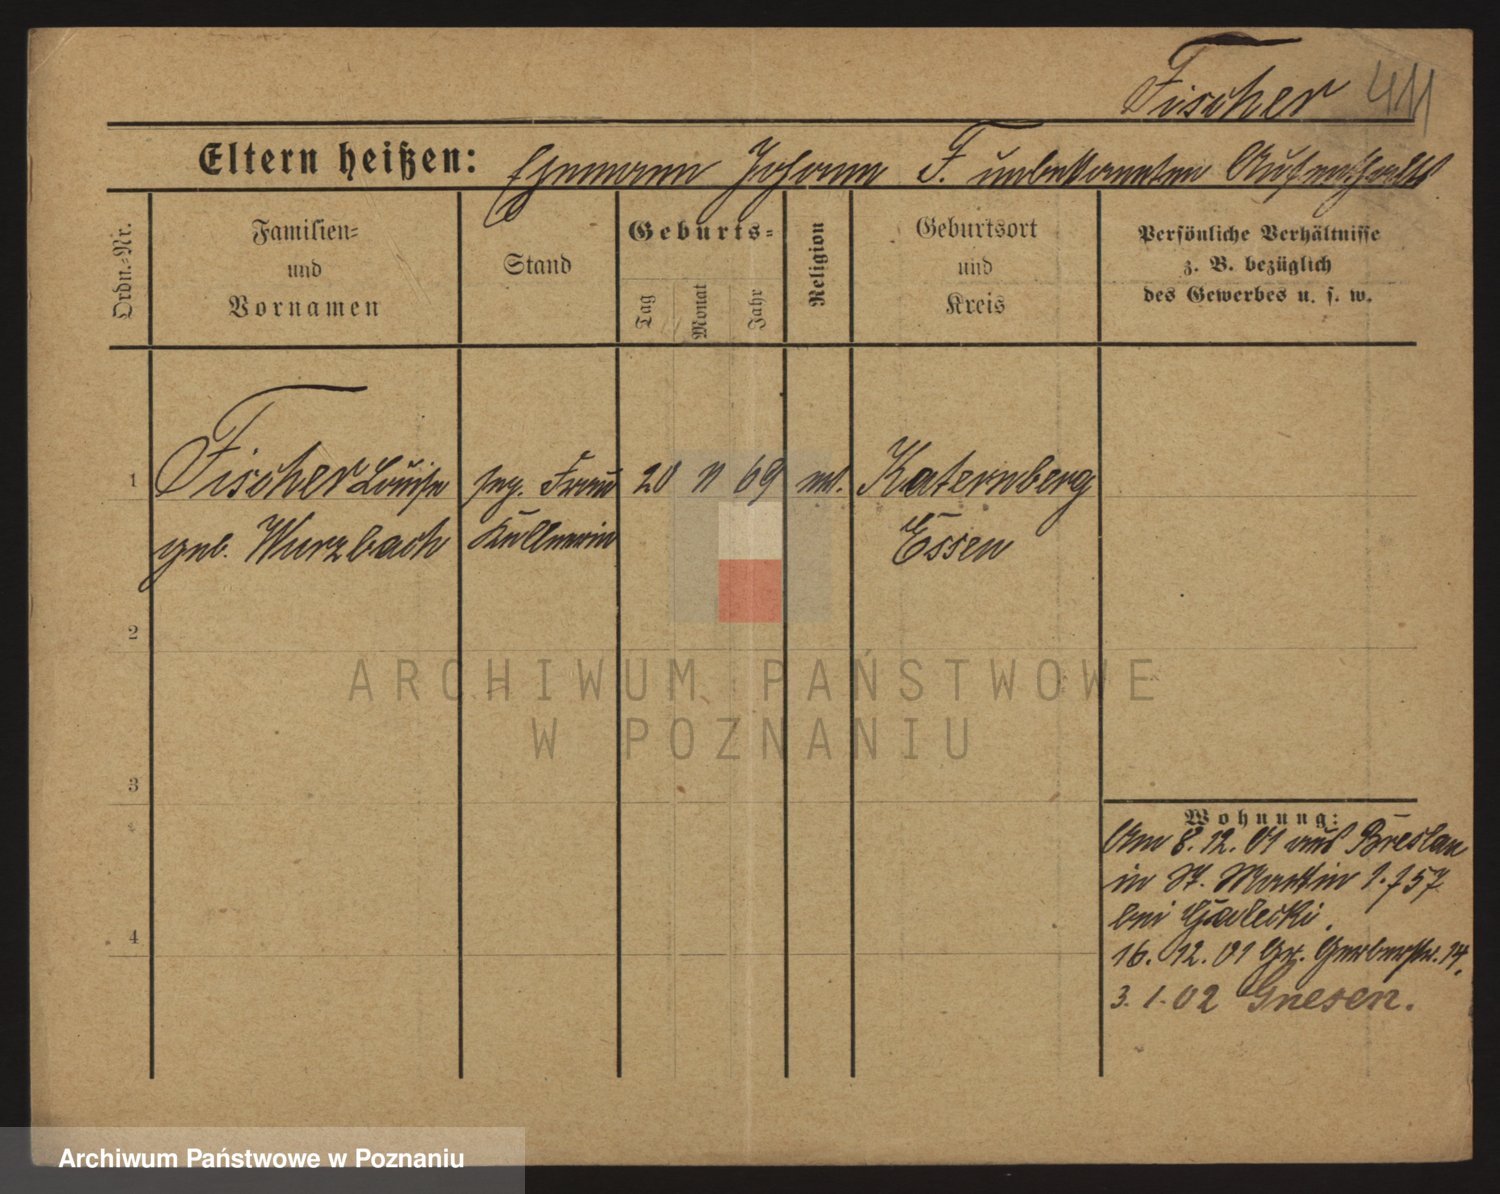 Fischer 411
Eltern heißen: Ehemann Johann F. unbekannten Aufenthalts
Ordn.-Nr.
Familien-
und
Vornamen
Stand
Geburts-
Tag
Monat
Jahr
Religion
Geburtsort
und
Kreis
Persönliche Verhältnisse
z. B. bezüglich
des Gewerbes u. s. w.
1 Fischer Louise Frau 20 11 69 Katernberg
geb. Wurzbach Kellnerin Essen
2
3
4
Wohnung:
Am 8. 12. 01 aus Breslau
in St. Martin 57
bei
16. 12. 01 Gr. Gerberstr. 14.
3. 1. 02 Gnesen.
ARCHIWUM PAŃSTWOWE
W POZNANIU
Archiwum Państwowe w Poznaniu